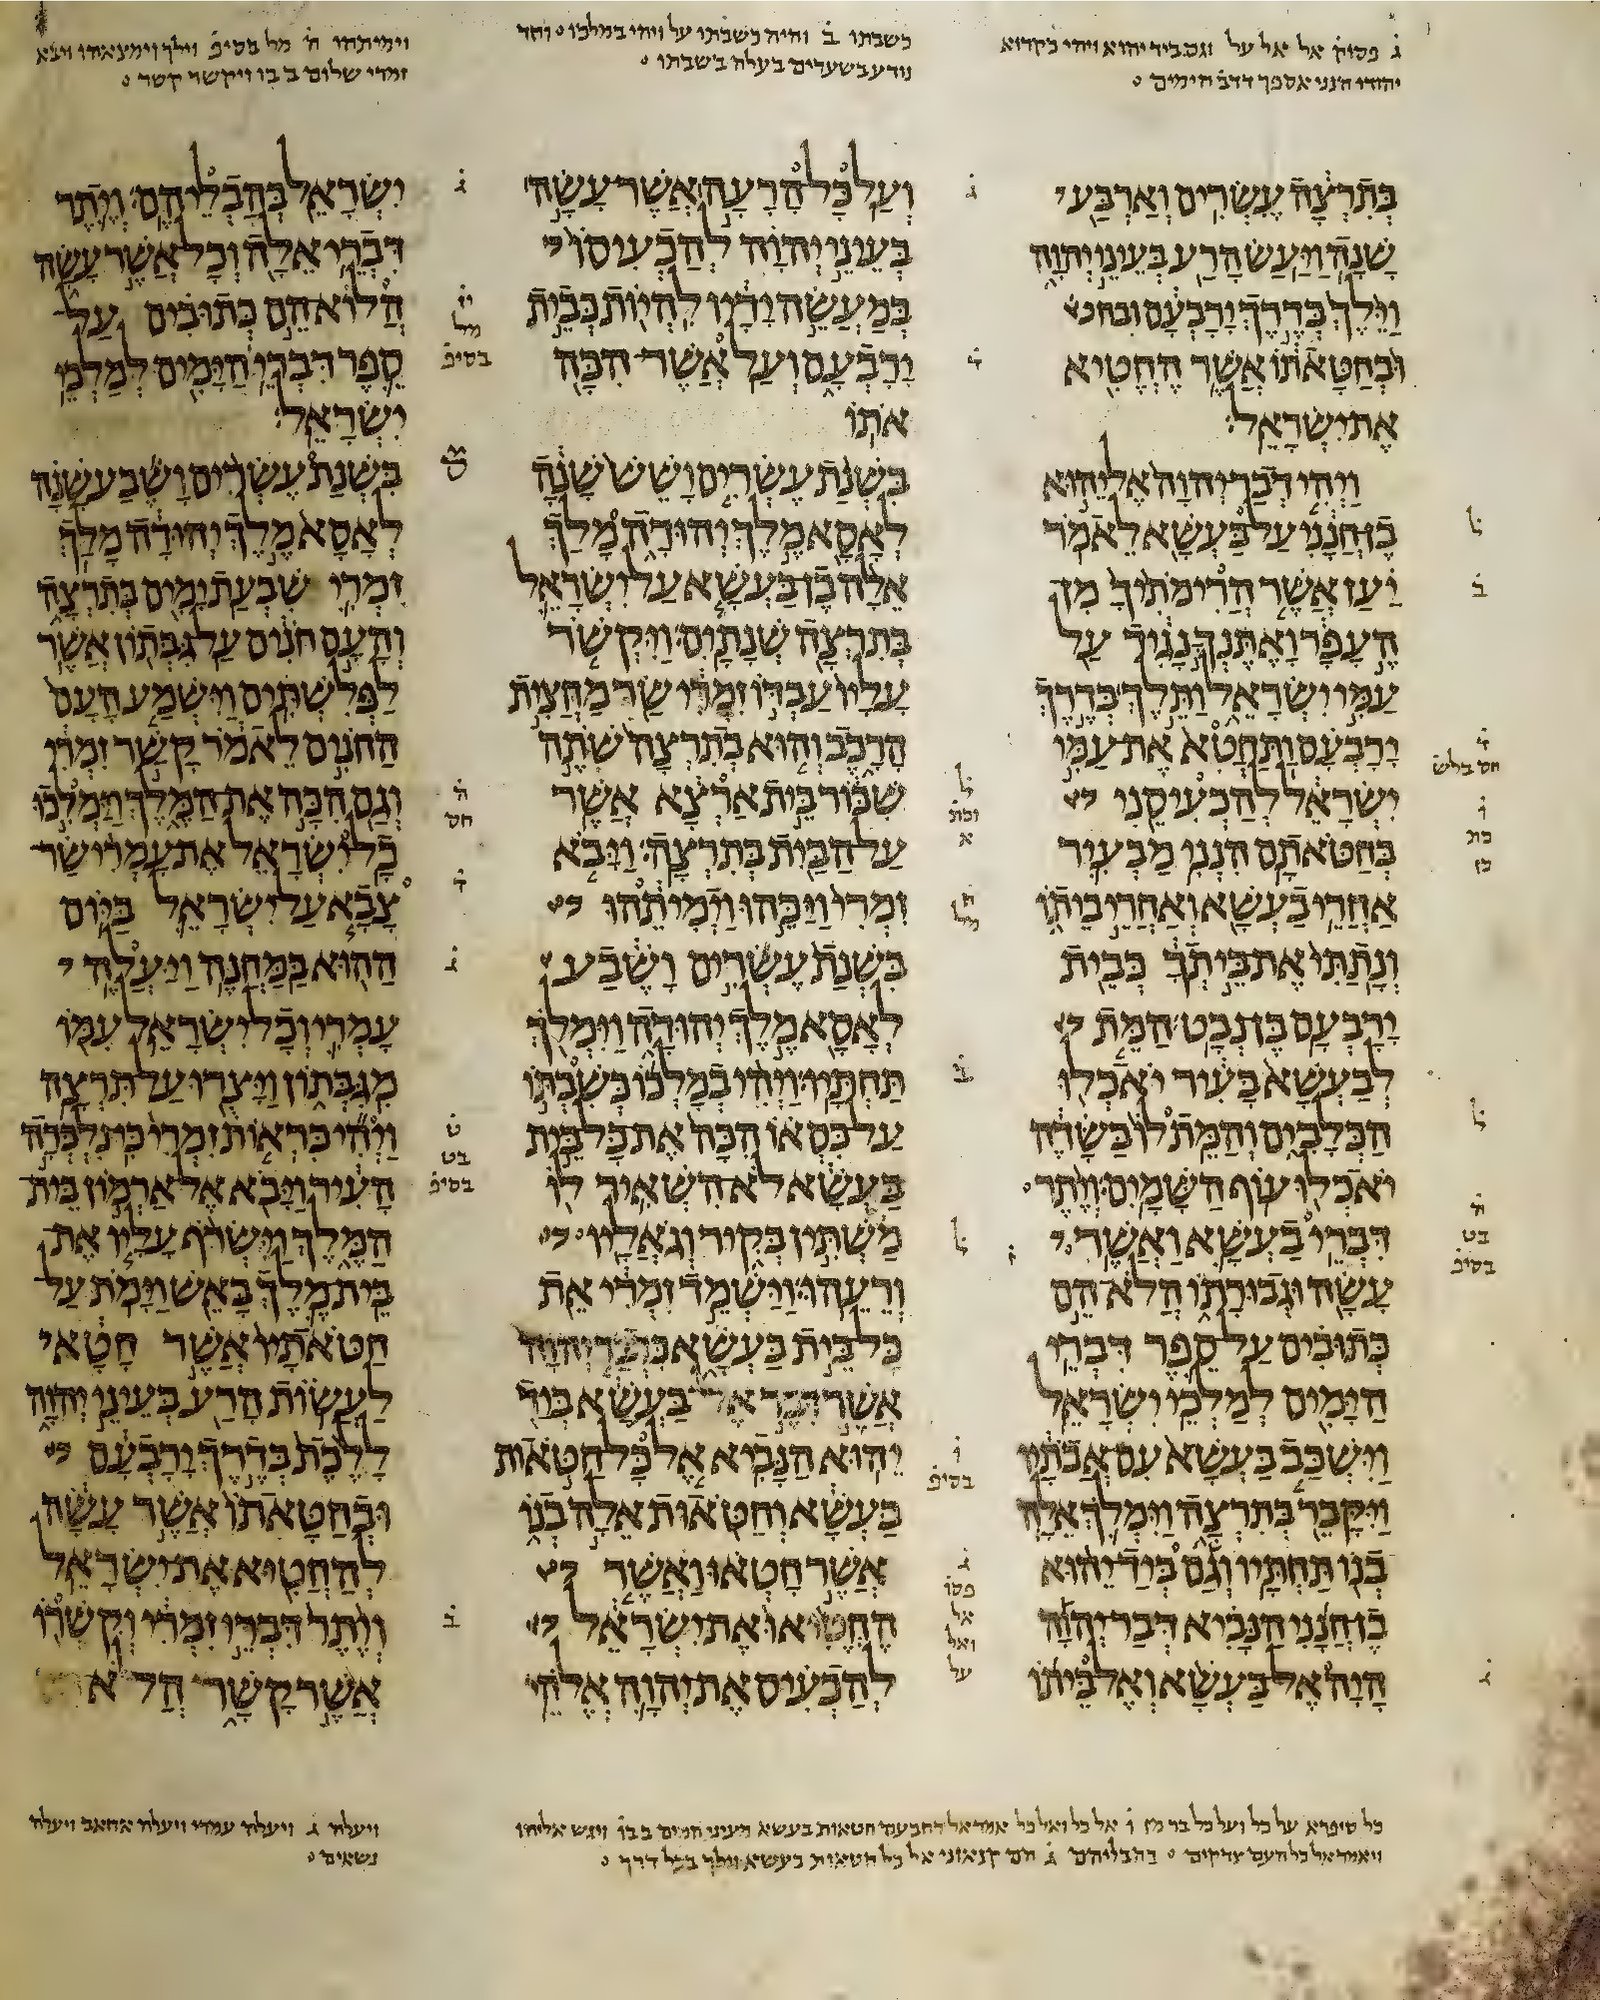 ג פסוק אל אל על וגם ביד יהוא ויהי כקרוא
יהודי הנני אספך דדב הימים
כשבתו ב והיה כשבתו על ויהי במלכו וחד
נודע בשערים בעלה בשבתו
וימיתהו ח מל בסיפ וילך וימצאהו ויצא
זמרי שלום ב בו ויקשר קשר
בתרצה עשרים וארבע
שנה ויעש הרע בעיני יהוה
וילך בדרך ירבעם ובחט
ובחטאתו אשר החטיא
את ישראל
ויהי דבר יהוה אל יהוא
בן חנני על בעשא לאמר
יען אשר הרימתיך מן
העפר ואתנך נגיד על
עמי ישראל ותלך בדרך
ירבעם ותחטא את עמי
ישראל להכעיסני
בחטאתם הנני מבעיר
אחרי בעשא ואחרי ביתו
ונתתי את ביתך כבית
ירבעם בן נבט המת
לבעשא בעיר יאכלו
הכלבים והמת לו בשדה
יאכלו עוף השמים ויתר
דברי בעשא ואשר
עשה וגבורתו הלא הם
כתובים על ספר דברי
הימים למלכי ישראל
וישכב בעשא עם אבתיו
ויקבר בתרצה וימלך אלה
בנו תחתיו וגם ביד יהוא
בן חנני הנביא דבר יהוה
היה אל בעשא ואל ביתו
ועל כל הרעה אשר עשה
בעיני יהוה להכעיסו
במעשה ידיו להיות כבית
ירבעם ועל אשר הכה
אתו
בשנת עשרים ושש שנה
לאסא מלך יהודה מלך
אלה בן בעשא על ישראל
בתרצה שנתים ויקשר
עליו עבדו זמרי שר מחצית
הרכב והוא בתרצה שתה
שכור בית ארצא אשר
על הבית בתרצה ויבא
זמרי ויכהו וימיתהו
בשנת עשרים ושבע
לאסא מלך יהודה וימלך
תחתיו ויהי במלכו כשבתו
על כסאו הכה את כל בית
בעשא לא השאיר לו
משתין בקיר וגאליו
ורעהו וישמד זמרי את
כל בית בעשא כדבר יהוה
אשר דבר אל בעשא ביד
יהוא הנביא אל כל חטאות
בעשא וחטאות אלה בנו
אשר חטאו ואשר
החטיאו את ישראל
להכעיס את יהוה אלהי
ישראל בהבליהם ויתר
דברי אלה וכל אשר עשה
הלוא הם כתובים על
ספר דברי הימים למלכי
ישראל
בשנת עשרים ושבע שנה
לאסא מלך יהודה מלך
זמרי שבעת ימים בתרצה
והעם חנים על גבתון אשר
לפלשתים וישמע העם
החנים לאמר קשר זמרי
וגם הכה את המלך וימלכו
כל ישראל את עמרי שר
צבא על ישראל ביום
ההוא במחנה ויעלה
עמרי וכל ישראל עמו
מגבתון ויצרו על תרצה
ויהי כראות זמרי כי נלכדה
העיר ויבא אל ארמון בית
המלך וישרף עליו את
בית מלך באש וימת על
חטאתיו אשר חטא
לעשות הרע בעיני יהוה
ללכת בדרך ירבעם
ובחטאתו אשר עשה
להחטיא את ישראל
ויתר דברי זמרי וקשרו
אשר קשר הלא
כל סיפרא על כל ועל כל בר מן ו אל כל ואל כל אמר אל חטאות בעשא ויגש אליהו
ויאמר אל כל העם צדקים בהבליהם ג הם קנאוני אל כל חטאות בעשא וילך בכל דרך
ויעלה ג ויעלה עמרי ויעלה אחאב ויעלה
נשאים